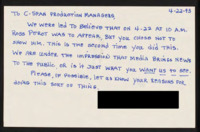 4-22-93
To C-SPAN PRODUCTION MANAGERS,
WE WERE LED TO BELIEVE THAT ON 4-22 AT 10 A.M.
ROSS PEROT WAS TO APPEAR, BUT YOU CHOSE NOT TO
SHOW HIM. THIS IS THE SECOND TIME YOU DID THIS.
WE ARE UNDER THE IMPRESSION THAT MEDIA BRINGS NEWS
TO THE PUBLIC, OR IS IT JUST WHAT YOU WANT US TO SEE.
PLEASE, IF POSSIBLE, LET US KNOW YOUR REASONS FOR
DOING THIS SORT OF THING.